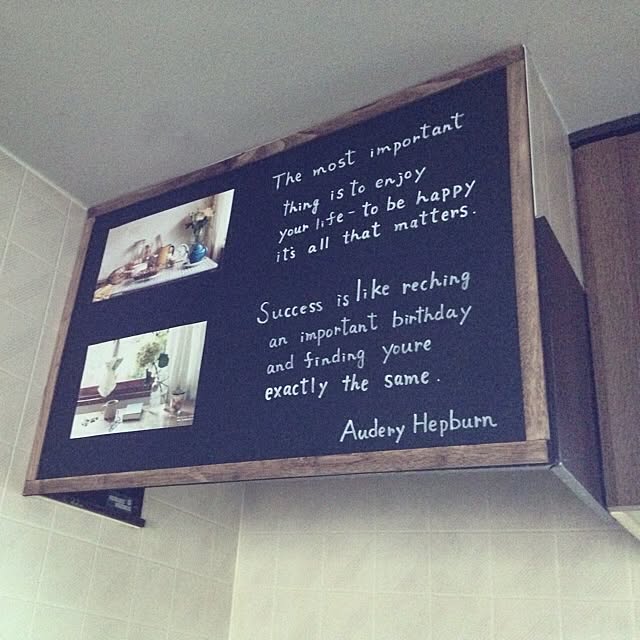 The most important
thing is to enjoy
your life - to be happy
it's all that matters.
Success is like reching
an important birthday
and finding youre
exactly the same.
Audery Hepburn